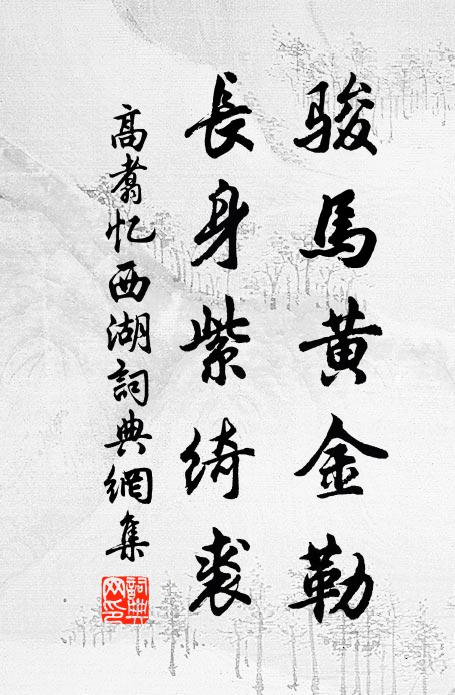 骏馬黄金勒
長身紫绮裘
高翥忆西湖詞典網集
詞典網印